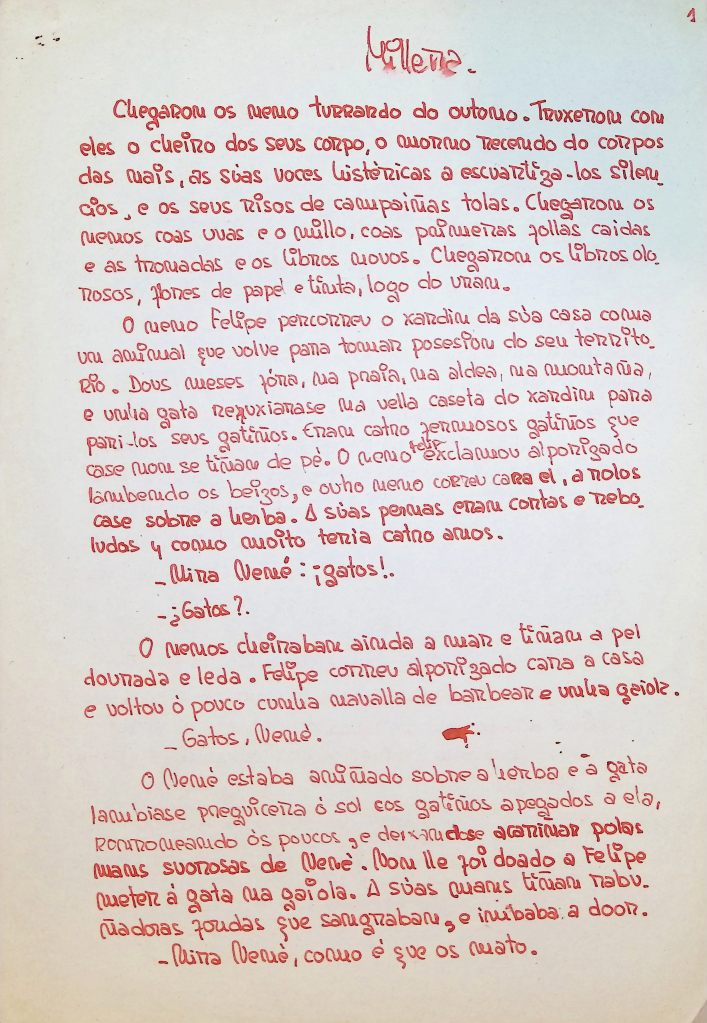 1
Millena.
Chegaron os neno turrando do outono. Truxeron con
eles o cheiro dos seus corpo, o morno recendo do corpos
das mais, as súas voces histéricas a escuartiza-los silen
cios, e os seus risos de campaíñas tolas. Chegaron os
nenos coas uvas e o millo, coas primeiras follas caidas
e as tronadas e os libros novos. Chegaron os libros olo
rosos, fones de papel e tinta, logo do vran.
O neno Felipe percorreu o xardin da súa casa coma
un animal que volve para tomar posesión do seu territo
rio. Dous meses fóra, na praia, na aldea, na montaña,
e unha gata refuxiarase na vella caseta do xardin para
pari-los seus gatiños. Eran catro fermosos gatiños que
case non se tiñan de pé. O neno Felip exclamou alporizado
lambendo os beizos, e outro neno correu cara el, a rolos
case sobre a herba. A súas pernas eran cortas e rebo
ludas y como moito teria catro anos.
- Mira Nené: ¡gatos!.
- ¿Gatos?.
O nenos cheiraban ainda a mar e tiñan a pel
dourada e leda. Felipe correu alporizado cara a casa
e voltou ó pouco cunha navalla de barbear e unha gaiola.
- Gatos, Nené.
O Nené estaba aniñado sobre a herba e a gata
lambiase preguiceira ó sol cos gatiños apegados a ela,
ronroneando ós poucos, e deixandose acariñar polas
mans suorosas de Nené. Non lle foi doado a Felipe
meter á gata na gaiola. A súas mans tiñan rabu
ñadoras fondas que sangraban, e inubaba a door.
- Mira Nené, como é que os mato.